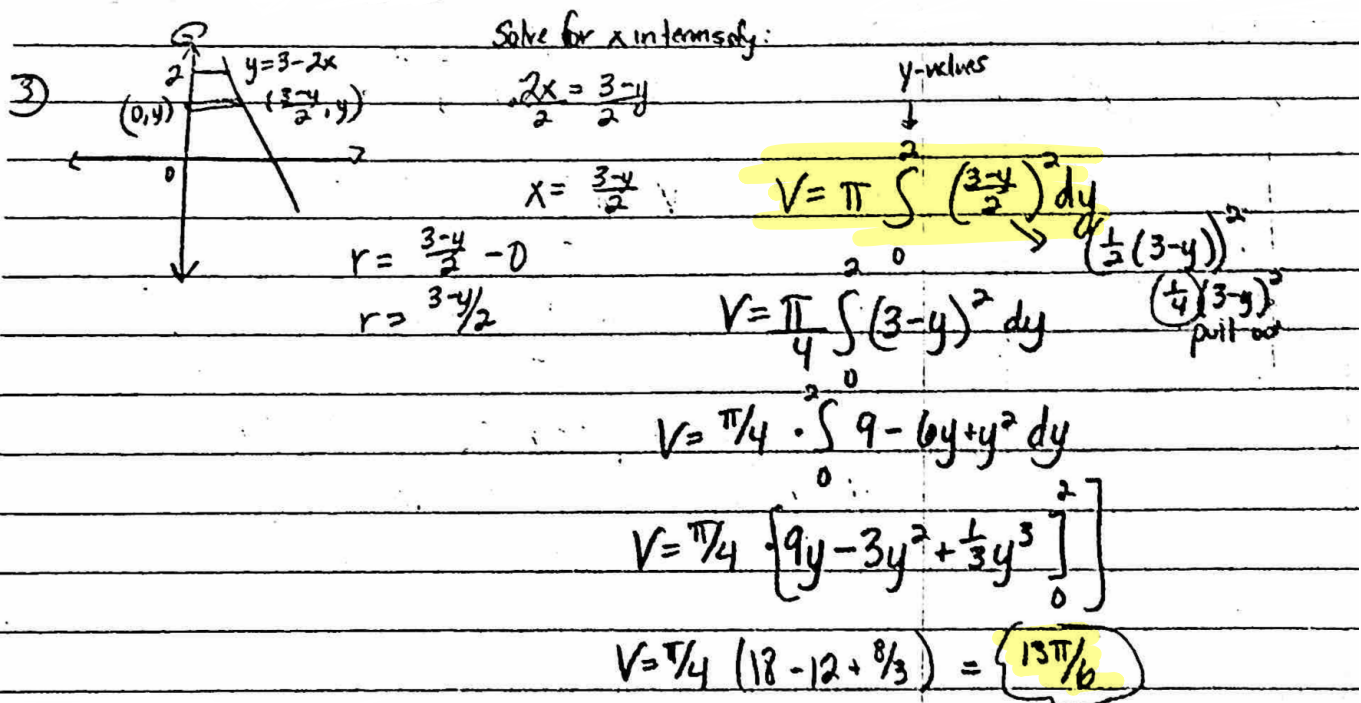 Solve for x in terms of y:
③
2
y=3-2x
(0,y)
(3-y/2, y)
0
2x/2 = 3-y/2
x = 3-y/2
r = 3-y/2 - 0
r = 3-y/2
y-values
↓
V = π ∫₀² (3-y/2)² dy
↘ (1/2(3-y))²
(1/4)(3-y)²
pull out
V = π/4 ∫₀² (3-y)² dy
V = π/4 · ∫₀² 9-6y+y² dy
V = π/4 · [9y-3y²+1/3y³]₀²]
V = π/4 (18-12+8/3) = 13π/6